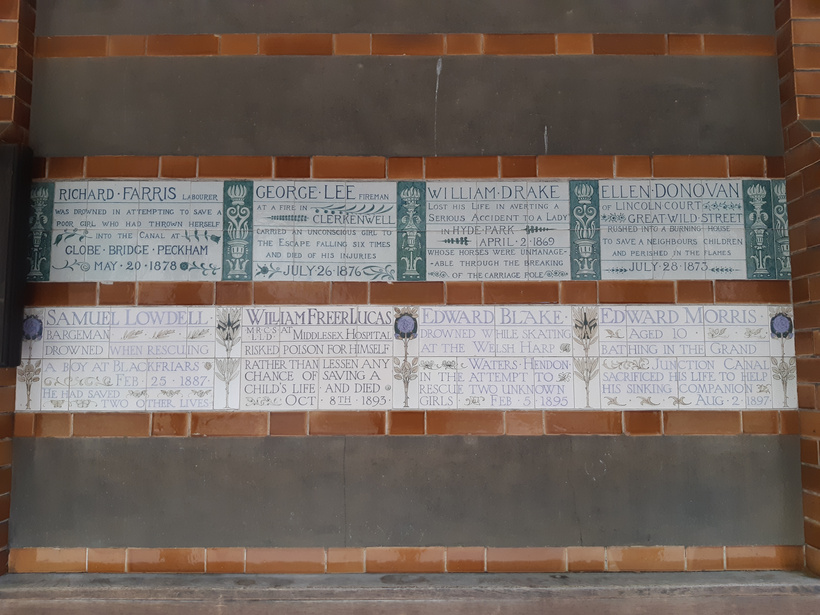 RICHARD · FARRIS LABOURER
WAS DROWNED IN ATTEMPTING TO SAVE A
POOR GIRL WHO HAD THROWN HERSELF
INTO THE CANAL AT
GLOBE · BRIDGE · PECKHAM
MAY · 20 · 1878
GEORGE · LEE FIREMAN
AT A FIRE IN
CLERKENWELL
CARRIED AN UNCONSCIOUS GIRL TO
THE ESCAPE FALLING SIX TIMES
AND DIED OF HIS INJURIES
JULY 26 1876
WILLIAM · DRAKE
LOST HIS LIFE IN AVERTING A
SERIOUS ACCIDENT TO A LADY
IN HYDE PARK
APRIL · 2 · 1869
WHOSE HORSES WERE UNMANAGE-
ABLE THROUGH THE BREAKING
OF THE CARRIAGE POLE
ELLEN · DONOVAN
OF LINCOLN COURT
GREAT WILD STREET
RUSHED INTO A BURNING HOUSE
TO SAVE A NEIGHBOURS CHILDREN
AND PERISHED IN THE FLAMES
JULY · 28 · 1873
SAMUEL LOWDELL
BARGEMAN
DROWNED WHEN RESCUING
A BOY AT BLACKFRIARS
FEB · 25 · 1887
HE HAD SAVED
TWO OTHER LIVES
WILLIAM FREER LUCAS
M·R·C·S·
L·L·D AT MIDDLESEX HOSPITAL
RISKED POISON FOR HIMSELF
RATHER THAN LESSEN ANY
CHANCE OF SAVING A
CHILD'S LIFE AND DIED
OCT · 8TH · 1893
EDWARD BLAKE
DROWNED WHILE SKATING
AT THE WELSH HARP
WATERS · HENDON
IN THE ATTEMPT TO
RESCUE TWO UNKNOWN
GIRLS FEB 5 · 1895
EDWARD MORRIS
AGED 10
BATHING IN THE GRAND
JUNCTION CANAL
SACRIFICED HIS LIFE TO HELP
HIS SINKING COMPANION
AUG · 2 · 1897